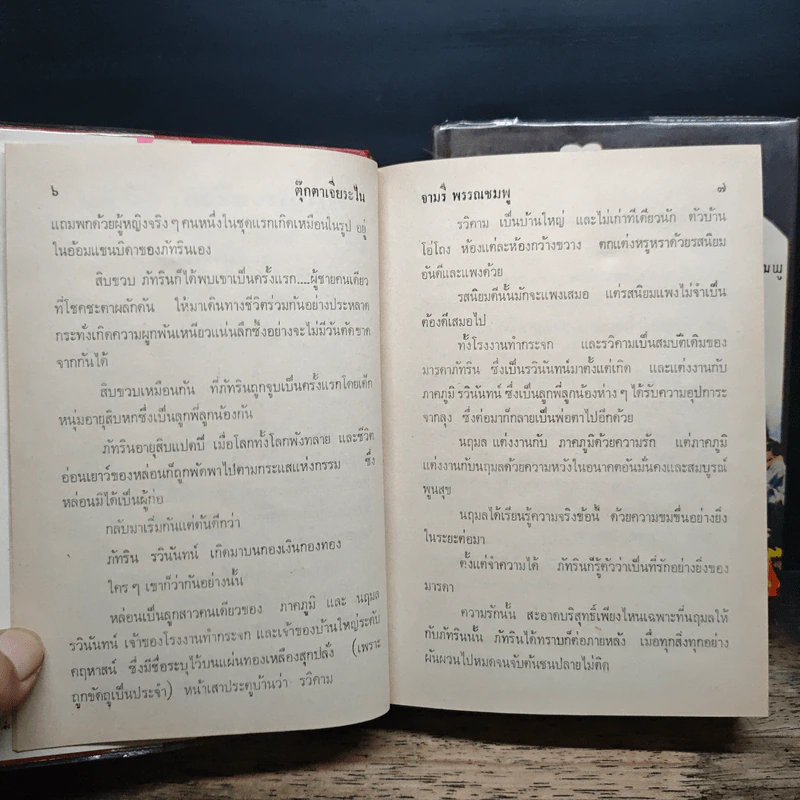 ๖ ตุ๊กตาเจียระไน
แถมพกด้วยผู้หญิงจริง ๆ คนหนึ่งในชุดแรกเกิดเหมือนในรูป อยู่
ในอ้อมแขนบิดาของภัทรินเอง
สิบขวบ ภัทรินก็ได้พบเขาเป็นครั้งแรก....ผู้ชายคนเดียว
ที่โชคชะตาผลักดัน ให้มาเดินทางชีวิตร่วมกันอย่างประหลาด
กระทั่งเกิดความผูกพันเหนียวแน่นลึกซึ้งอย่างจะไม่มีวันตัดขาด
จากกันได้
สิบขวบเหมือนกัน ที่ภัทรินถูกจูบเป็นครั้งแรกโดยเด็ก
หนุ่มอายุสิบหกซึ่งเป็นลูกพี่ลูกน้องกัน
ภัทรินอายุสิบแปดปี เมื่อโลกทั้งโลกพังทลาย และชีวิต
อ่อนเยาว์ของหล่อนก็ถูกพัดพาไปตามกระแสแห่งกรรม ซึ่ง
หล่อนมิได้เป็นผู้ก่อ
กลับมาเริ่มกันแต่ต้นดีกว่า
ภัทริน รวินันทน์ เกิดมาบนกองเงินกองทอง
ใคร ๆ เขาก็ว่ากันอย่างนั้น
หล่อนเป็นลูกสาวคนเดียวของ ภาคภูมิ และ นฤมล
รวินันทน์ เจ้าของโรงงานทำกระจก และเจ้าของบ้านใหญ่ระดับ
คฤหาสน์ ซึ่งมีชื่อระบุไว้บนแผ่นทองเหลืองสุกปลั่ง (เพราะ
ถูกขัดถูเป็นประจำ) หน้าเสาประตูบ้านว่า รวิคาม
จามรี พรรณชมพู ๗
รวิคาม เป็นบ้านใหญ่ และไม่เก่าทีเดียวนัก ตัวบ้าน
โอ่โถง ห้องแต่ละห้องกว้างขวาง ตกแต่งหรูหราด้วยรสนิยม
อันดีและแพงด้วย
รสนิยมดีนั้นมักจะแพงเสมอ แต่รสนิยมแพงไม่จำเป็น
ต้องดีเสมอไป
ทั้งโรงงานทำกระจก และรวิคามเป็นสมบัติเดิมของ
มารดาภัทริน ซึ่งเป็นรวินันทน์มาตั้งแต่เกิด และแต่งงานกับ
ภาคภูมิ รวินันทน์ ซึ่งเป็นลูกพี่ลูกน้องห่าง ๆ ได้รับความอุปการะ
จากลุง ซึ่งต่อมาก็กลายเป็นพ่อตาไปอีกด้วย
นฤมล แต่งงานกับ ภาคภูมิด้วยความรัก แต่ภาคภูมิ
แต่งงานกับนฤมลด้วยความหวังในอนาคตอันมั่นคงและสมบูรณ์
พูนสุข
นฤมลได้เรียนรู้ความจริงข้อนี้ ด้วยความขมขื่นอย่างยิ่ง
ในระยะต่อมา
ตั้งแต่จำความได้ ภัทรินก็รู้ตัวว่าเป็นที่รักอย่างยิ่งของ
มารดา
ความรักนั้น สะอาดบริสุทธิ์เพียงไหนเฉพาะที่นฤมลให้
กับภัทรินนั้น ภัทรินได้ทราบก็ต่อภายหลัง เมื่อทุกสิ่งทุกอย่าง
ผันผวนไปหมดจนจับต้นชนปลายไม่ติด
มพู